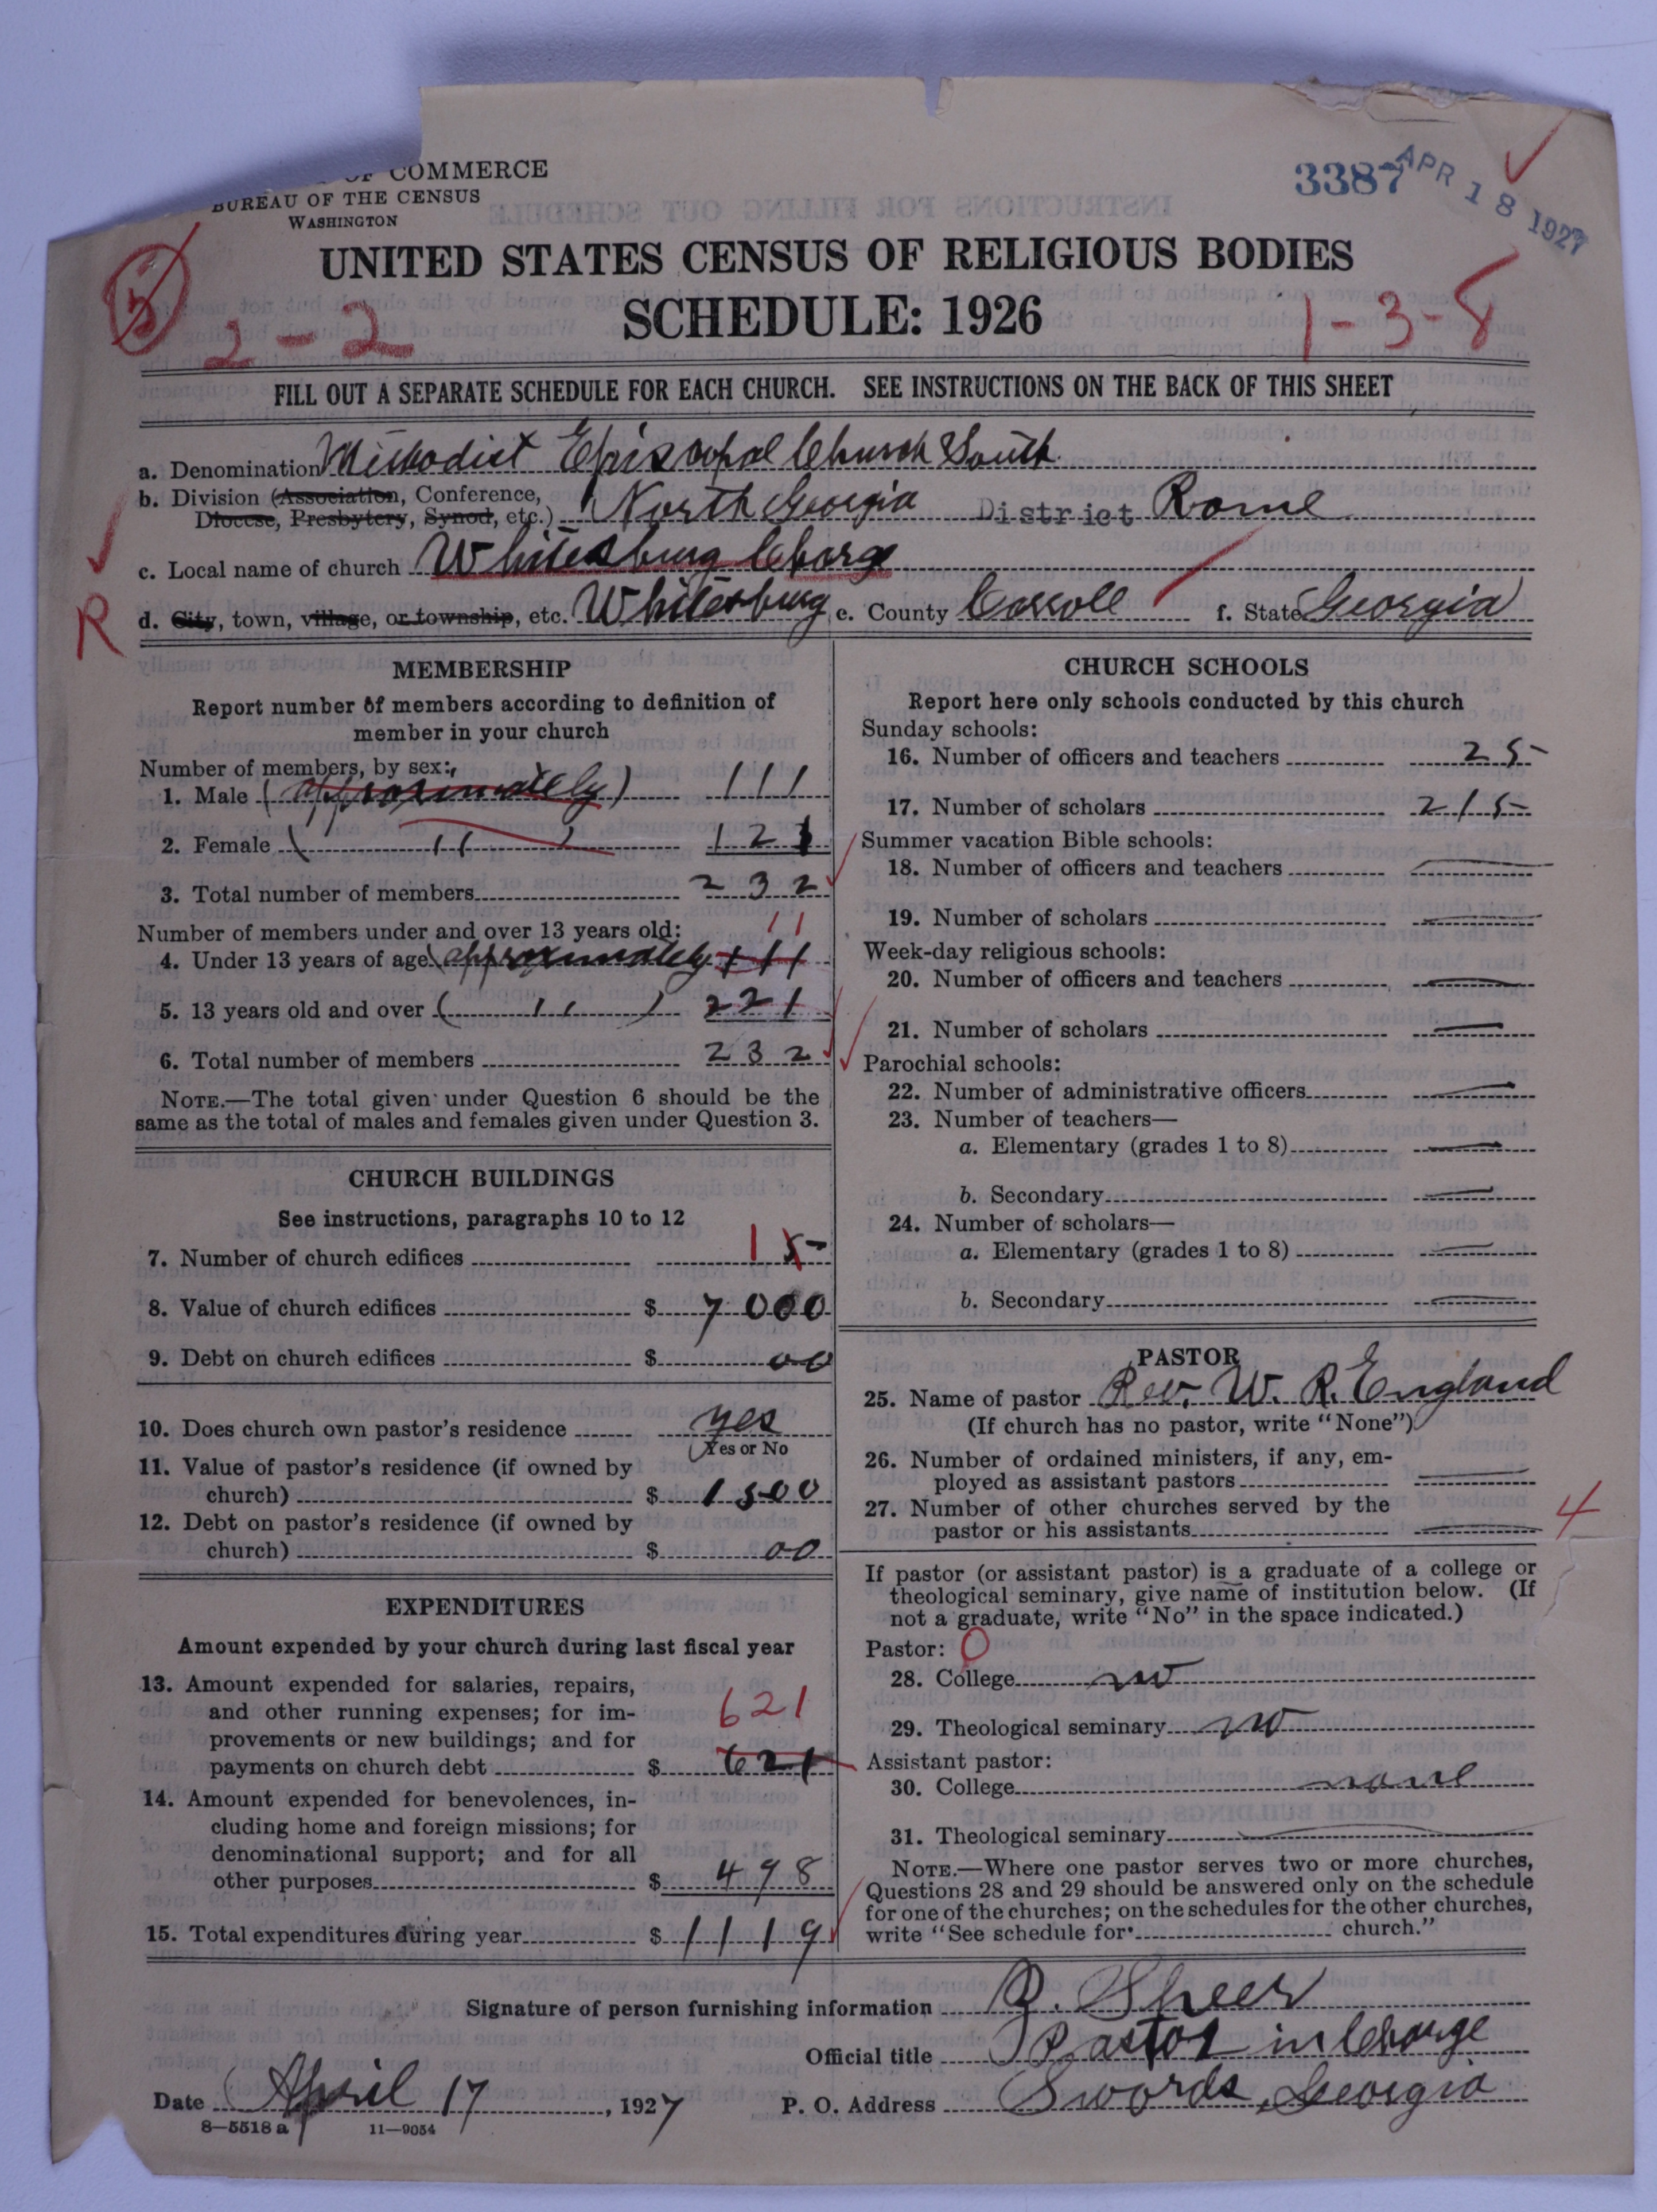 OF COMMERCE
BUREAU OF THE CENSUS
WASHINGTON
3387
APR 18 1927
UNITED STATES CENSUS OF RELIGIOUS BODIES
SCHEDULE: 1926
2-2
1-3-8
FILL OUT A SEPARATE SCHEDULE FOR EACH CHURCH. SEE INSTRUCTIONS ON THE BACK OF THIS SHEET
a. Denomination Methodist Episcopal Church South
b. Division (Association, Conference,
Diocese, Presbytery, Synod, etc.) North Georgia District Rome
c. Local name of church Whitesburg Charge
R
d. City, town, village, or township, etc. Whitesburg e. County Carroll f. State Georgia
MEMBERSHIP
Report number of members according to definition of
member in your church
Number of members, by sex:
1. Male (approximately) 111
2. Female ( " ) 121
3. Total number of members 232
Number of members under and over 13 years old: 11
4. Under 13 years of age (approximately 11
5. 13 years old and over ( " ) 221
6. Total number of members 232
NOTE.—The total given under Question 6 should be the
same as the total of males and females given under Question 3.
CHURCH BUILDINGS
See instructions, paragraphs 10 to 12
7. Number of church edifices 1 5
8. Value of church edifices $ 7000
9. Debt on church edifices $ 00
10. Does church own pastor's residence yes
Yes or No
11. Value of pastor's residence (if owned by
church) $ 1500
12. Debt on pastor's residence (if owned by
church) $ 00
EXPENDITURES
Amount expended by your church during last fiscal year
13. Amount expended for salaries, repairs,
and other running expenses; for im-
provements or new buildings; and for 621
payments on church debt $ 621
14. Amount expended for benevolences, in-
cluding home and foreign missions; for
denominational support; and for all
other purposes $ 498
15. Total expenditures during year $ 1119
CHURCH SCHOOLS
Report here only schools conducted by this church
Sunday schools:
16. Number of officers and teachers 25
17. Number of scholars 215
Summer vacation Bible schools:
18. Number of officers and teachers
19. Number of scholars
Week-day religious schools:
20. Number of officers and teachers
21. Number of scholars
Parochial schools:
22. Number of administrative officers
23. Number of teachers—
a. Elementary (grades 1 to 8)
b. Secondary
24. Number of scholars—
a. Elementary (grades 1 to 8)
b. Secondary
PASTOR
25. Name of pastor Rev. W. R. England
(If church has no pastor, write "None")
26. Number of ordained ministers, if any, em-
ployed as assistant pastors
27. Number of other churches served by the
pastor or his assistants 4
If pastor (or assistant pastor) is a graduate of a college or
theological seminary, give name of institution below. (If
not a graduate, write "No" in the space indicated.)
Pastor: 0
28. College no
29. Theological seminary no
Assistant pastor:
30. College none
31. Theological seminary
NOTE.—Where one pastor serves two or more churches,
Questions 28 and 29 should be answered only on the schedule
for one of the churches; on the schedules for the other churches,
write "See schedule for church."
Signature of person furnishing information
Official title Pastor in Charge
Date April 17, 1927 P. O. Address Swords, Georgia
8—5518 a 11—9054